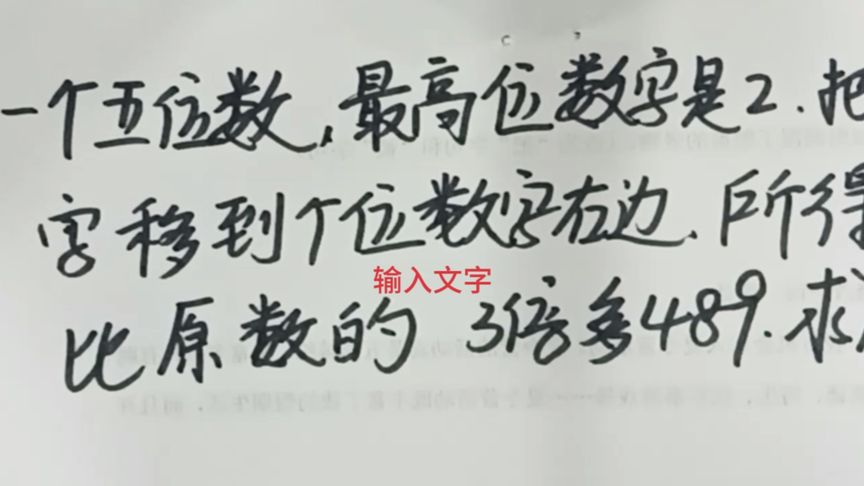 一个五位数,最高位数字是2.把
字移到个位数字右边.所得
输入文字
比原数的 3倍多489.求